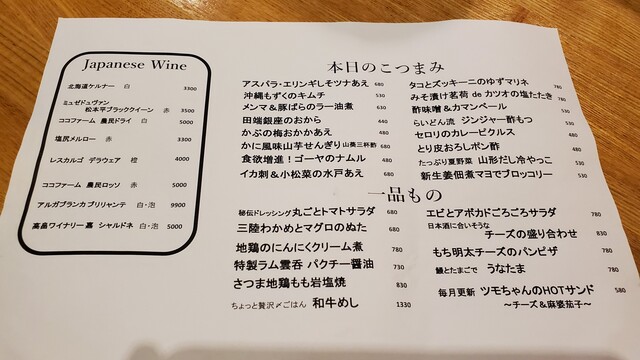 Japanese Wine
北海道ケルナー 白 3300
ミュゼドュヴァン
松本平ブラッククイーン 赤 3500
ココファーム 農民ドライ 白 5000
塩尻メルロー 赤 3300
レスカルゴ デラウェア 橙 4000
ココファーム 農民ロッソ 赤 5000
アルガブランカ ブリリャンテ 白・泡 9900
高畠ワイナリー 嘉 シャルドネ 白・泡 5000
本日のこつまみ
アスパラ・エリンギしそツナあえ 680
沖縄もずくのキムチ 530
メンマ&豚ばらのラー油煮 630
田端銀座のおから 440
かぶの梅おかかあえ 480
かに風味山芋せんぎり山葵三杯酢 680
食欲増進!ゴーヤのナムル 480
イカ刺&小松菜の水戸あえ 680
タコとズッキーニのゆずマリネ 780
みそ漬け茗荷 de カツオの塩たたき 780
酢味噌&カマンベール 530
らいどん流 ジンジャー酢もつ 530
セロリのカレーピクルス 480
とり皮おろしポン酢 480
たっぷり夏野菜 山形だし冷やっこ 530
新生姜佃煮マヨでブロッコリー 530
一品もの
秘伝ドレッシング 丸ごとトマトサラダ 680
三陸わかめとマグロのぬた 680
地鶏のにんにくクリーム煮 780
特製ラム雲呑 パクチー醤油 730
さつま地鶏もも岩塩焼 830
ちょっと贅沢〆ごはん 和牛めし 1330
エビとアボカドごろごろサラダ 780
日本酒に合いそうな
チーズの盛り合わせ 830
もち明太チーズのパンピザ 780
鰻とたまごで うなたま 780
毎月更新 ツモちゃんのHOTサンド 580
~チーズ&麻婆茄子~